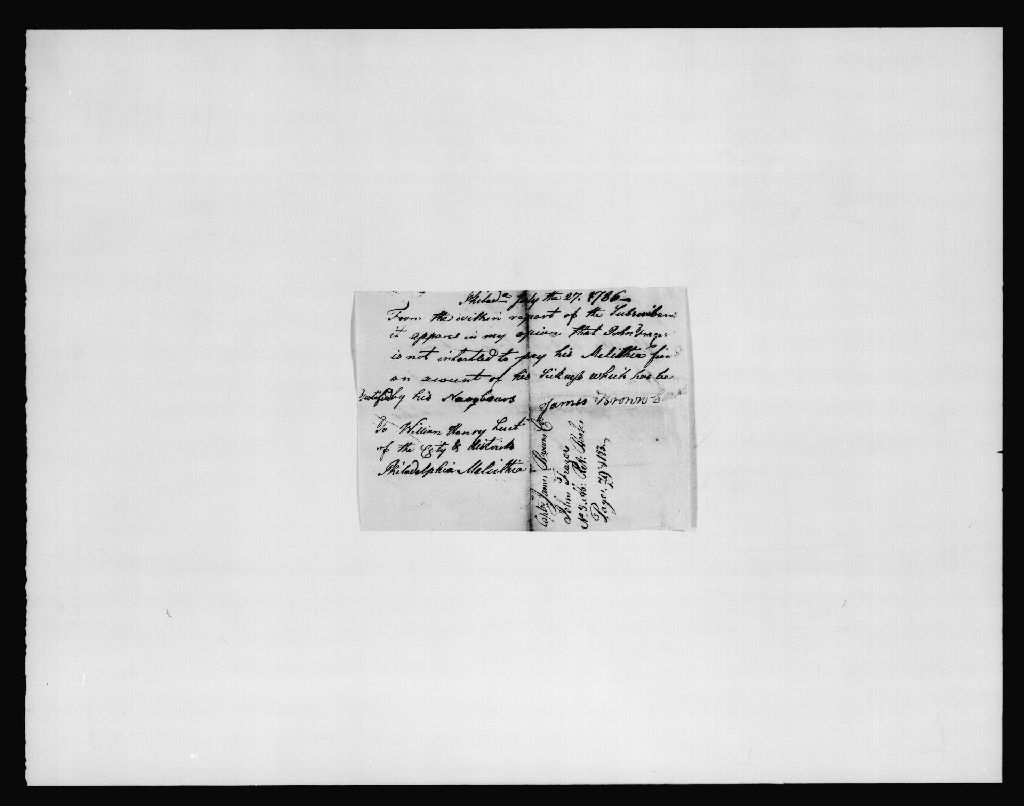 Philada July the 27. 1786
From the within report of the Subscribers
it appears in my opinion that John Frazer
is not intentled to pay his Melithia fin
on acount of his Sickness which has be
by his Naighbours James Brown
To William Henry Liut
of the City & Districts
Philadelphia Melithia
Captn James Browns
John Frazer
Pages 79 & 183